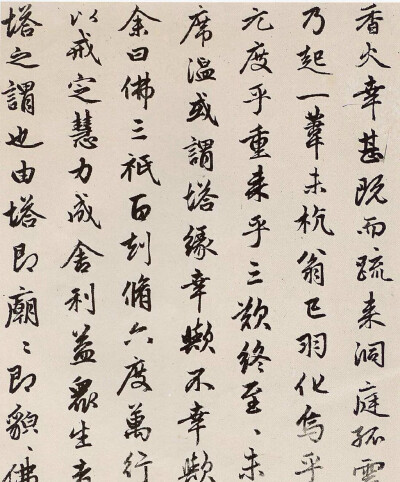 香火幸甚既而疏来洞庭孤雲
乃起一葦未杭翁已羽化焉乎
元度乎重来乎三歎终至〻未
席温或謂塔緣幸歟不幸歟
余曰佛三祇百刦脩六度萬行
以戒定慧力成舍利益衆生去
塔之謂也由塔即廟〻即貌〻佛